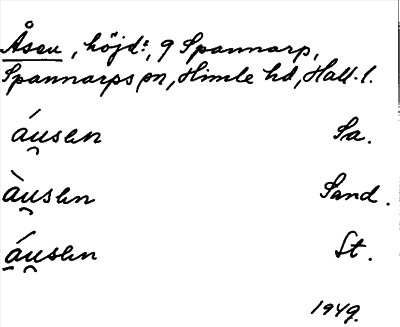 Åsen, höjd:, 9 Spannarp,
Spannarps sn, Himle hd, Hall. l.
áu̯sen Sa.
àu̯sen Sand.
á̱u̯sen St.
1949.